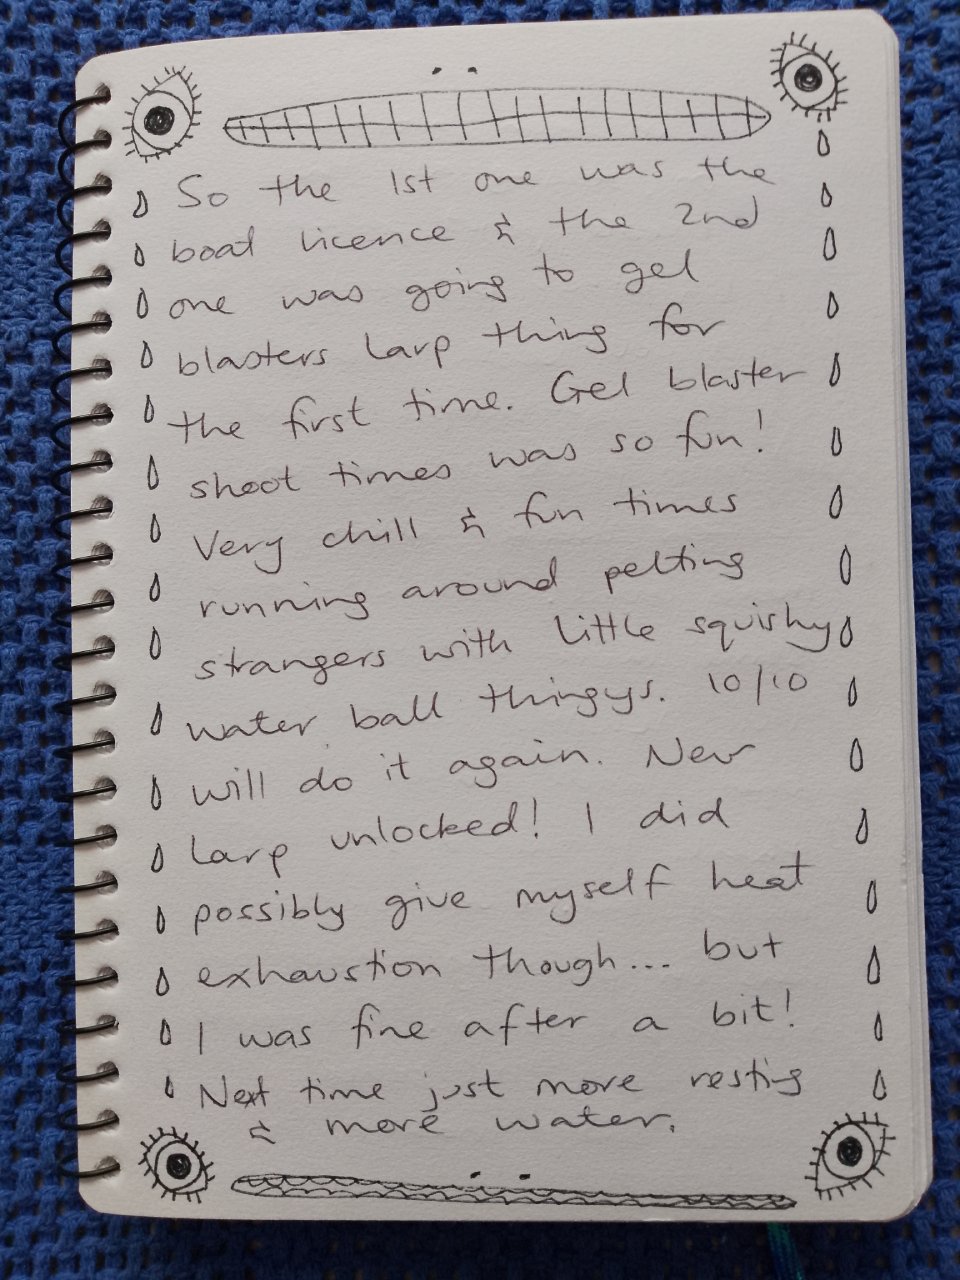 So the 1st one was the
boat licence & the 2nd
one was going to gel
blasters larp thing for
the first time. Gel blaster
shoot times was so fun!
Very chill & fun times
running around pelting
strangers with little squishy
water ball thingys. 10/10
will do it again. New
larp unlocked! I did
possibly give myself heat
exhaustion though... but
I was fine after a bit!
Next time just more resting
& more water.